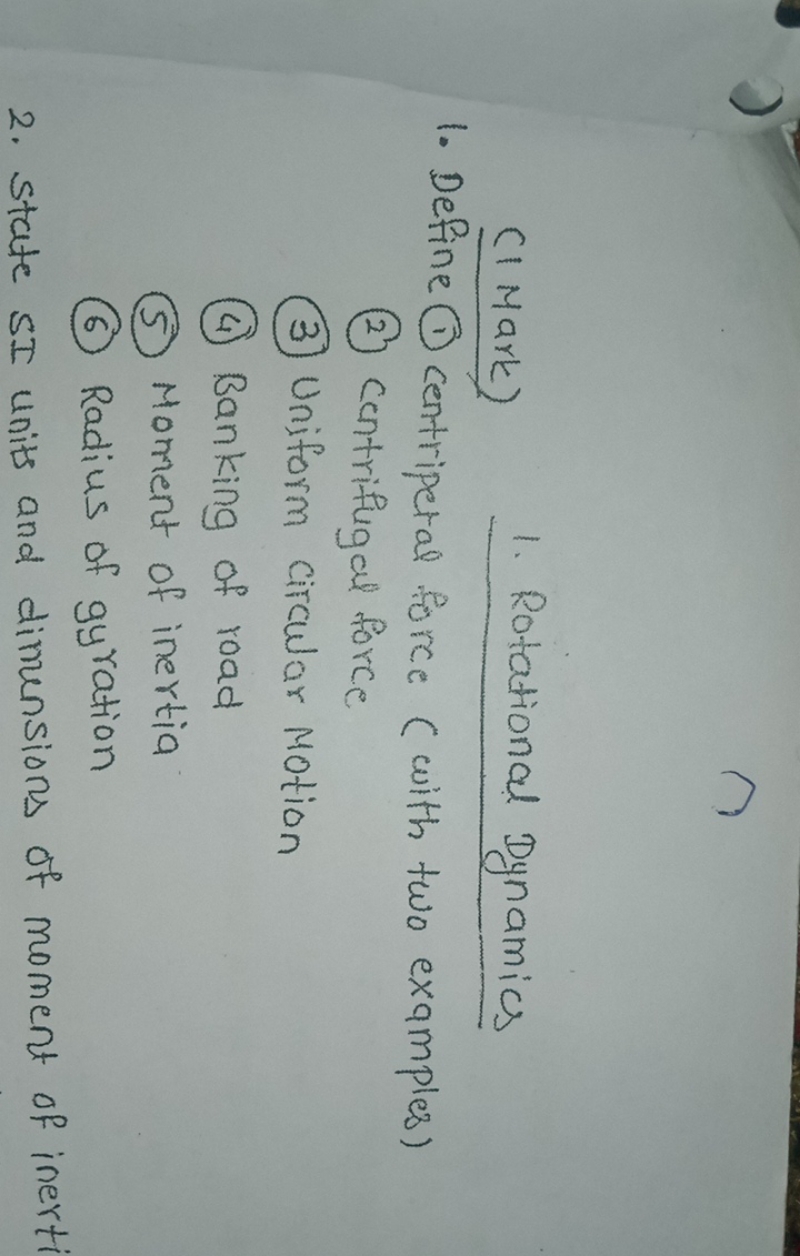 1. Rotational Dynamics
(1 Mark)
1. Define ① centripetal force (with two examples)
② Centrifugal force
③ Uniform circular Motion
④ Banking of road
⑤ Moment of inertia
⑥ Radius of gyration
2. State SI units and dimensions of moment of inerti